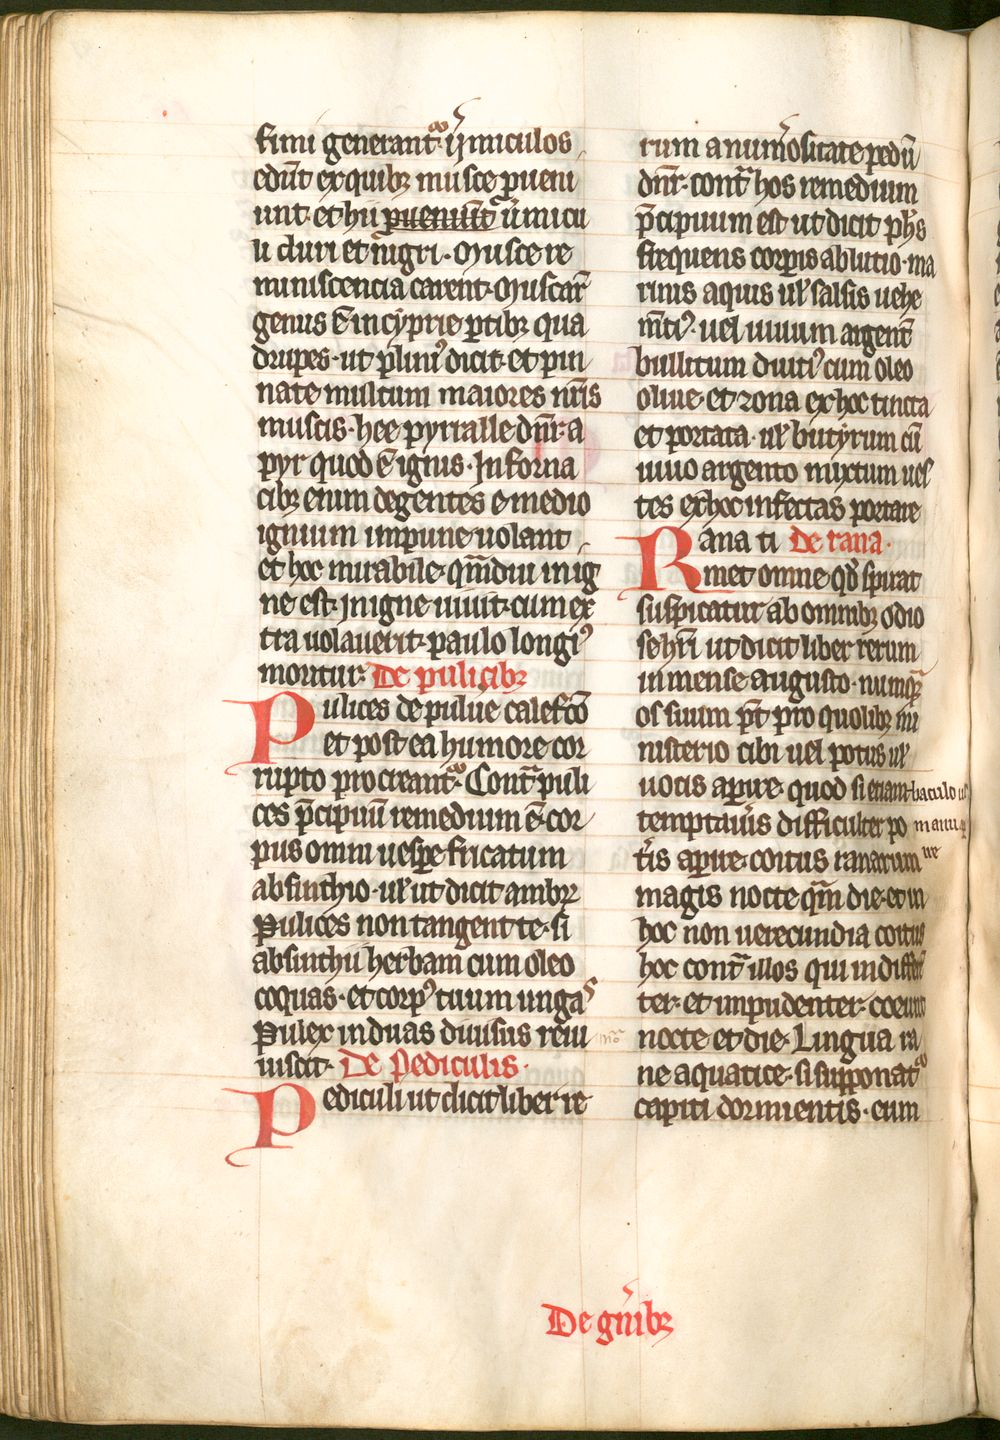 fimi generant᷑ v̾miculos
edūt ex quibꝫ musce ꝓueni
unt· et hij ꝓueniūt v̾micu
li duri et nigri· Musce re
miniscencia carent· Muscaꝝ
genus ē in cyprie ꝑtibꝫ qua
drupes· ut pliniꝰ dicit· et pin
nate multum maiores nr̄is
muscis· hee pyrralle dn̄r· a
pyr quod ē ignis· In forna
cibꝫ enim degentes e medio
ignium impune uolant
et hoc mirabile· qm̄diu in ig
ne est· in igne uiuit· cum ex
tra uolauerit· paulo longiꝰ
moritur· De pulicibꝫ
Pulices de puluē calefc̄o
et post ea humore cor
rupto procreant᷑ Cont̄ puli
ces p̄cipuū remedium ē· cor
pus omni uesꝑe fricatum
absinthio· ul̓ ut dicit ambꝝ
Pulices non tangent te· si
absinthii herbam cum oleo
coquas· et corpꝰ tuum ungas
Pulex in duas diuisus reui
uiscit· De Pediculis·
Pediculi ut dicit liber re
rum a numōsitate pedū
dn̄r· cont̄ hos remedium
p̄cipuum est ut dicit ph̄s
frequens corꝑis ablutio· ma
rinis aquis ul̓ salsis uehe
m̄tiꝰ· uel uiuum argent̄
bullitum diutiꝰ cum oleo
oliue· et zona ex hoc tincta
et portata· ul̓ butyrum cū
uiuo argento mixtum ues
tes ex hoc infectas portare
Rana ti De rana·
met omne qd̓ spirat
suspicatur ab omnibꝫ odio
se hr̄i ut dicit liber rerum
in mense augusto· numqꝫ
os suum p̄t pro quolibꝫ mi
nisterio cibi uel potus ul̓
uocis aꝑire· quod si etiam baculo ul̓
temptau̾is difficulter po manu
t̾is aꝑire· coitus ranarum
magis nocte qm̄ die· et in
hoc non uerecundia coitus
hoc cont̄ illos qui indiffer̄
ter· et impudenter· coeunt
nocte et die· Lingua ra
ne aquatice· si supponat᷑
capiti dormientis· eum
De gn̄ibꝫ